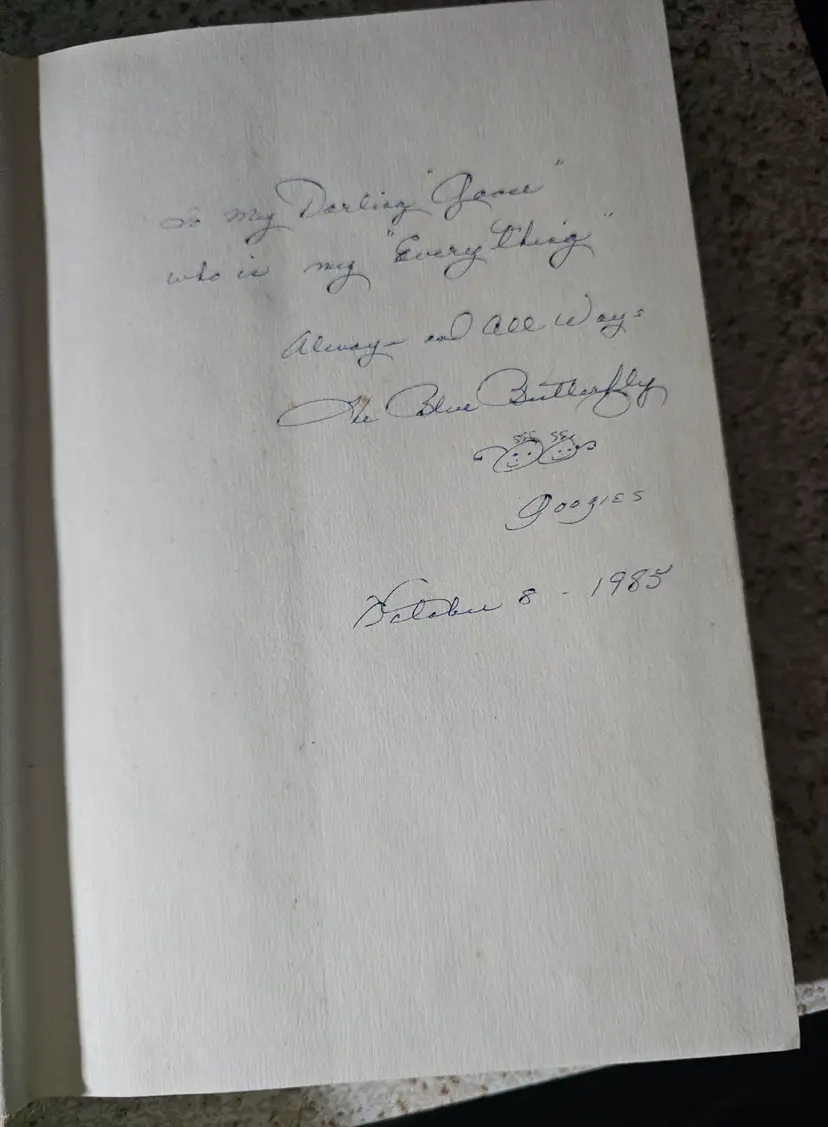 To my Darling "Goose"
who is my "Everything"
Always and All Ways
The Blue Butterfly
Googies
October 8 - 1985